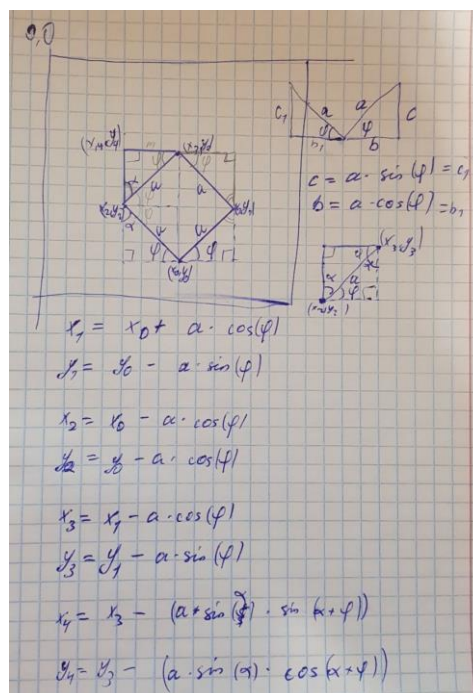 0,0
c₁ a a c
φ φ
b₁ b
c = a · sin(φ) = c₁
b = a · cos(φ) = b₁
a a
α
a a
φ φ
(x₃, y₃)
α a φ
x₁ = x₀ + a · cos(φ)
y₁ = y₀ - a · sin(φ)
x₂ = x₀ - a · cos(φ)
y₂ = y₀ - a · cos(φ)
x₃ = x₁ - a · cos(φ)
y₃ = y₁ - a · sin(φ)
x₄ = x₃ - (a + sin(α) · sin(α+φ))
y₄ = y₃ - (a · sin(α) · cos(α+φ))